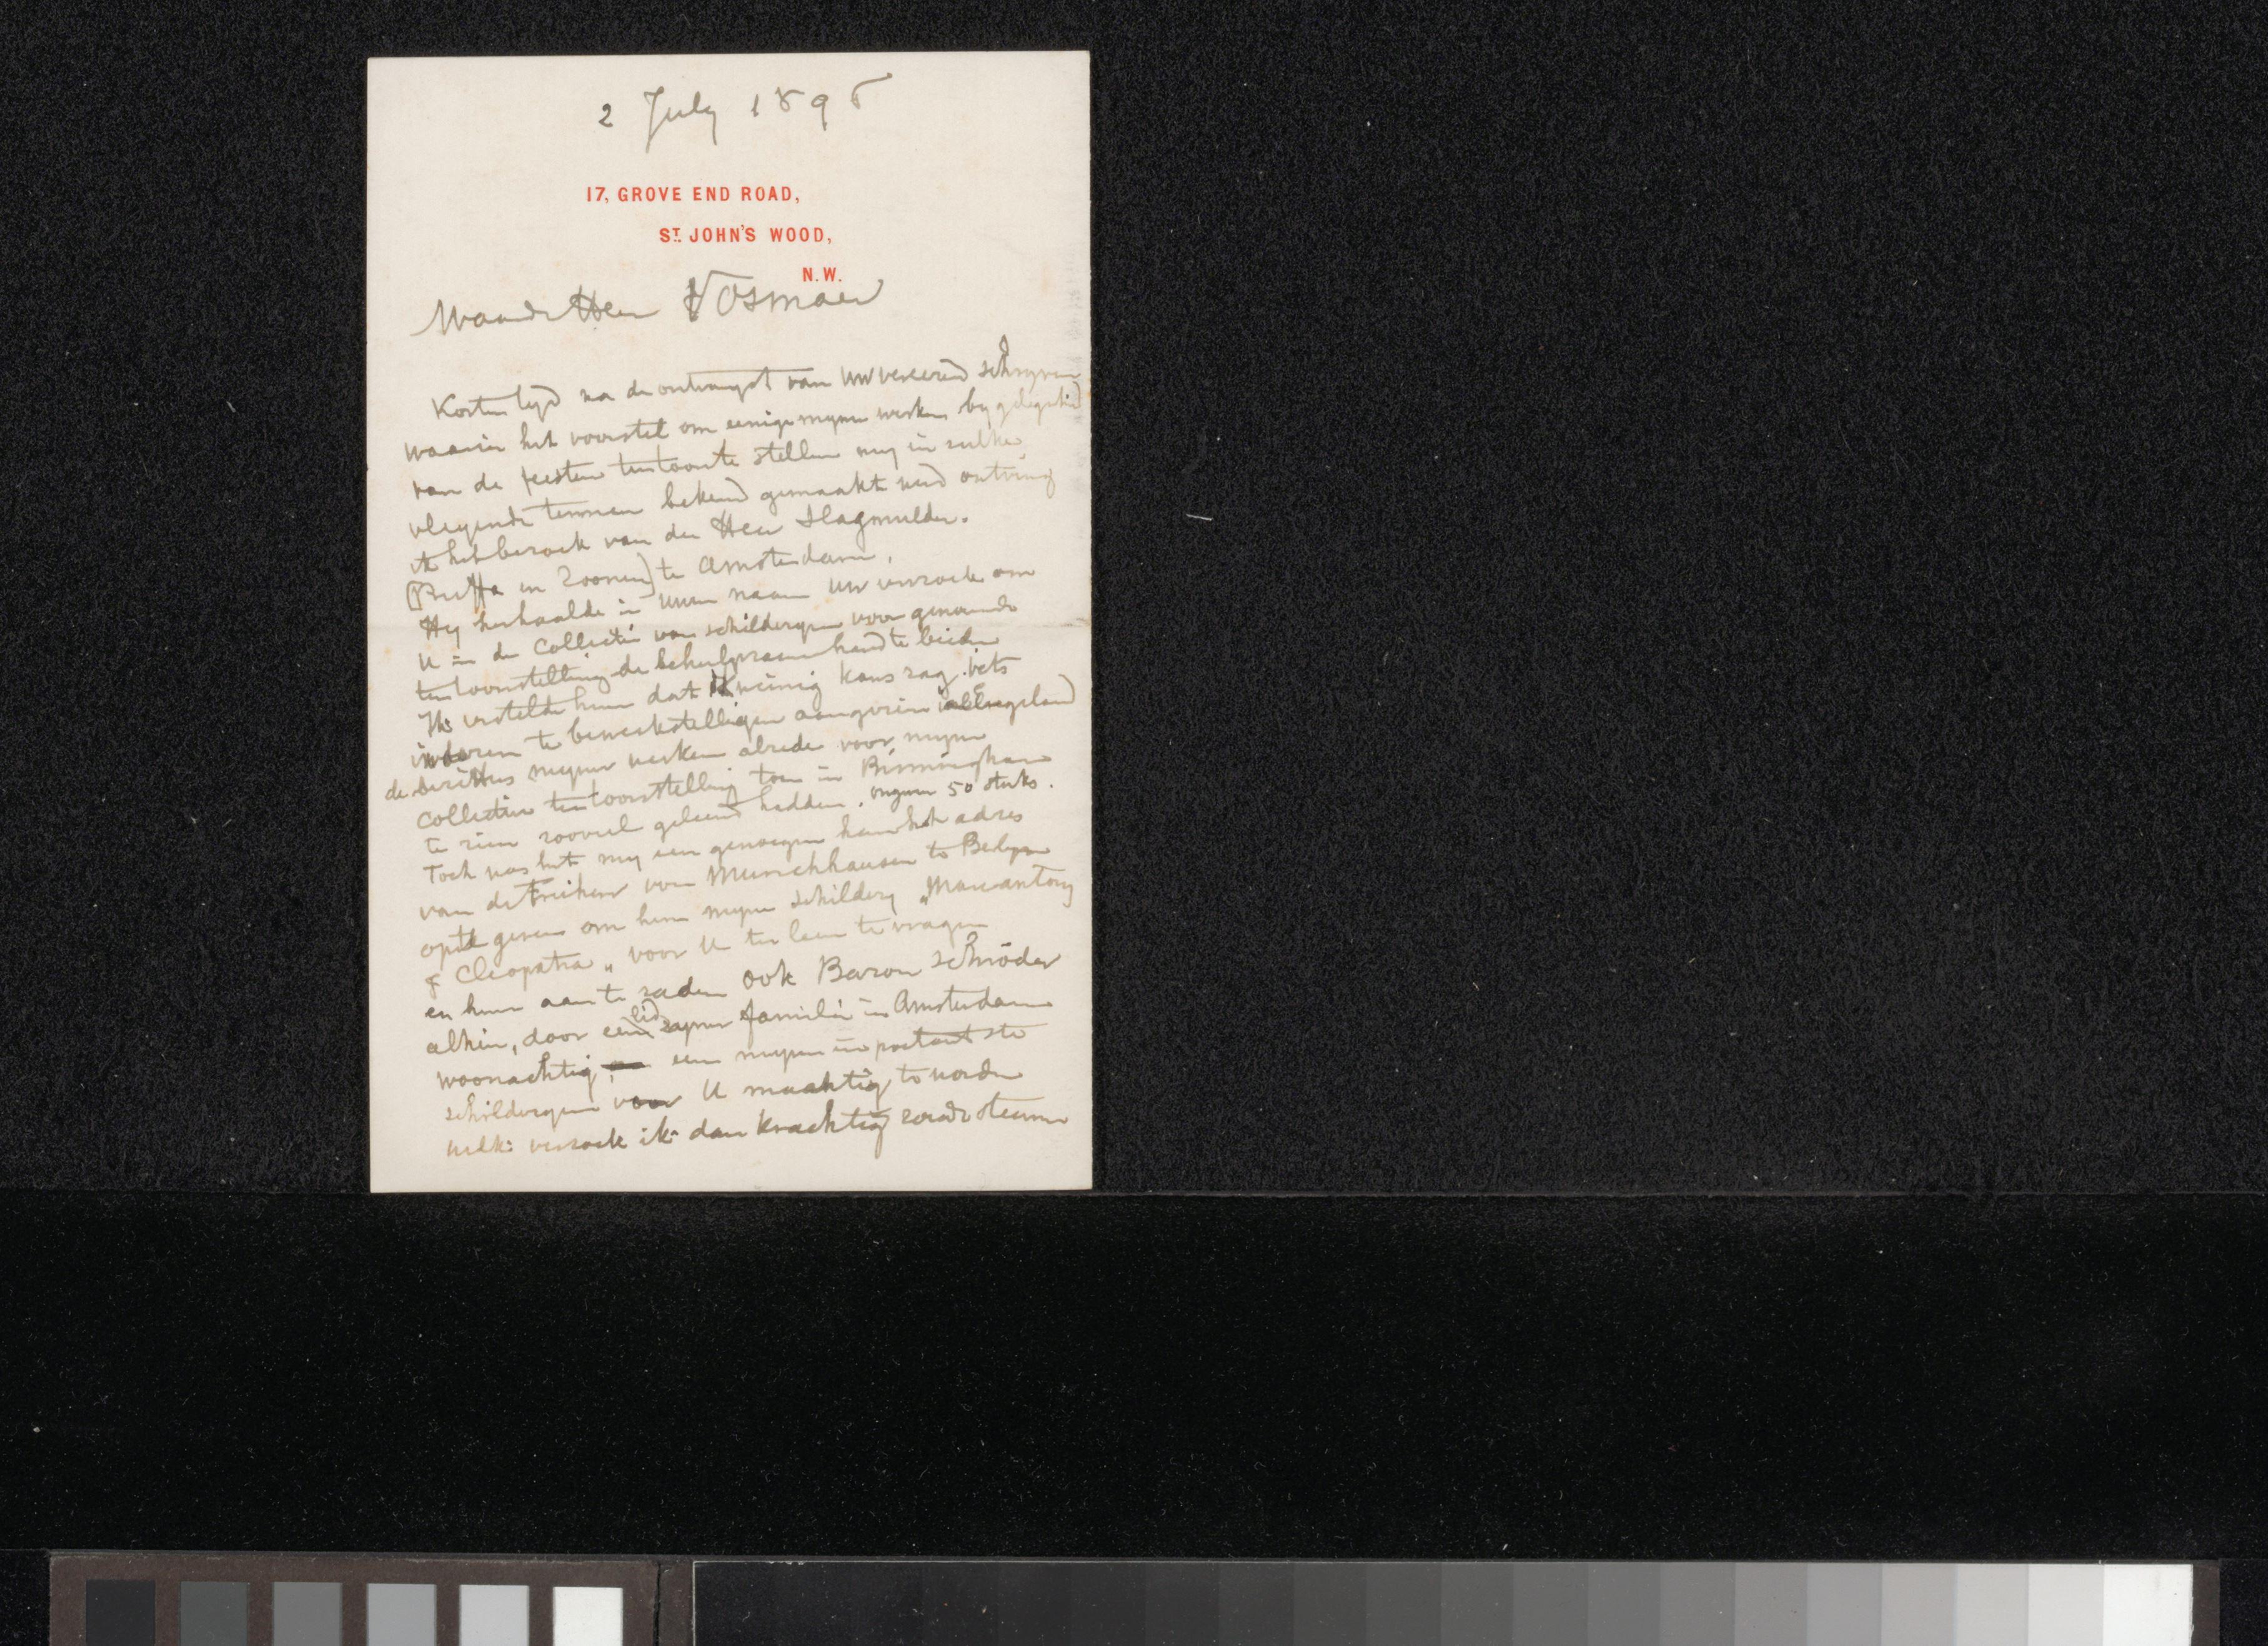 2 July 1898
17, GROVE END ROAD,
ST. JOHN'S WOOD,
N.W.
Waarde Heer Vosmaer
Korten tyd na de ontvangst van Uw vereerend schryven
waarin het voorstel om eenige myner werken by gelegenheid
van de feesten tentoonte stellen my in zulke
vleyende termen bekend gemaakt werd ontving
ik het bezoek van den Heer Slagmulder.
(Buffa en Zoonen) te Amsterdam.
Hy herhaalde in Uwen naam Uw verzoek om
U in de Collectie van schilderyen voor genoemde
tentoonstelling de behulpzame hand te bieden
Ik vertelde hem dat ik weinig kans zag iets
indezen te bewerkstelligen aangezien in Engeland
de bezitters myner werken alrede voor myne
collective tentoonstelling toen in Birmingham
te zien zooveel geleend hadden. ongeveer 50 stuks.
Toch was het my een genoegen hem het adres
van de Freiherr von Munchhausen te Berlyn
opte geven om hem myne schildery „Marcantony
& Cleopatra„ voor U ter leen te vragen
en hem aan te raden ook Baron Schröder
alhier, door een lid zyner familie in Amsterdam
woonachtig, een myner importantste
schilderyen voor U machtig te worden
welk verzoek ik dan krachtig zoude steunen